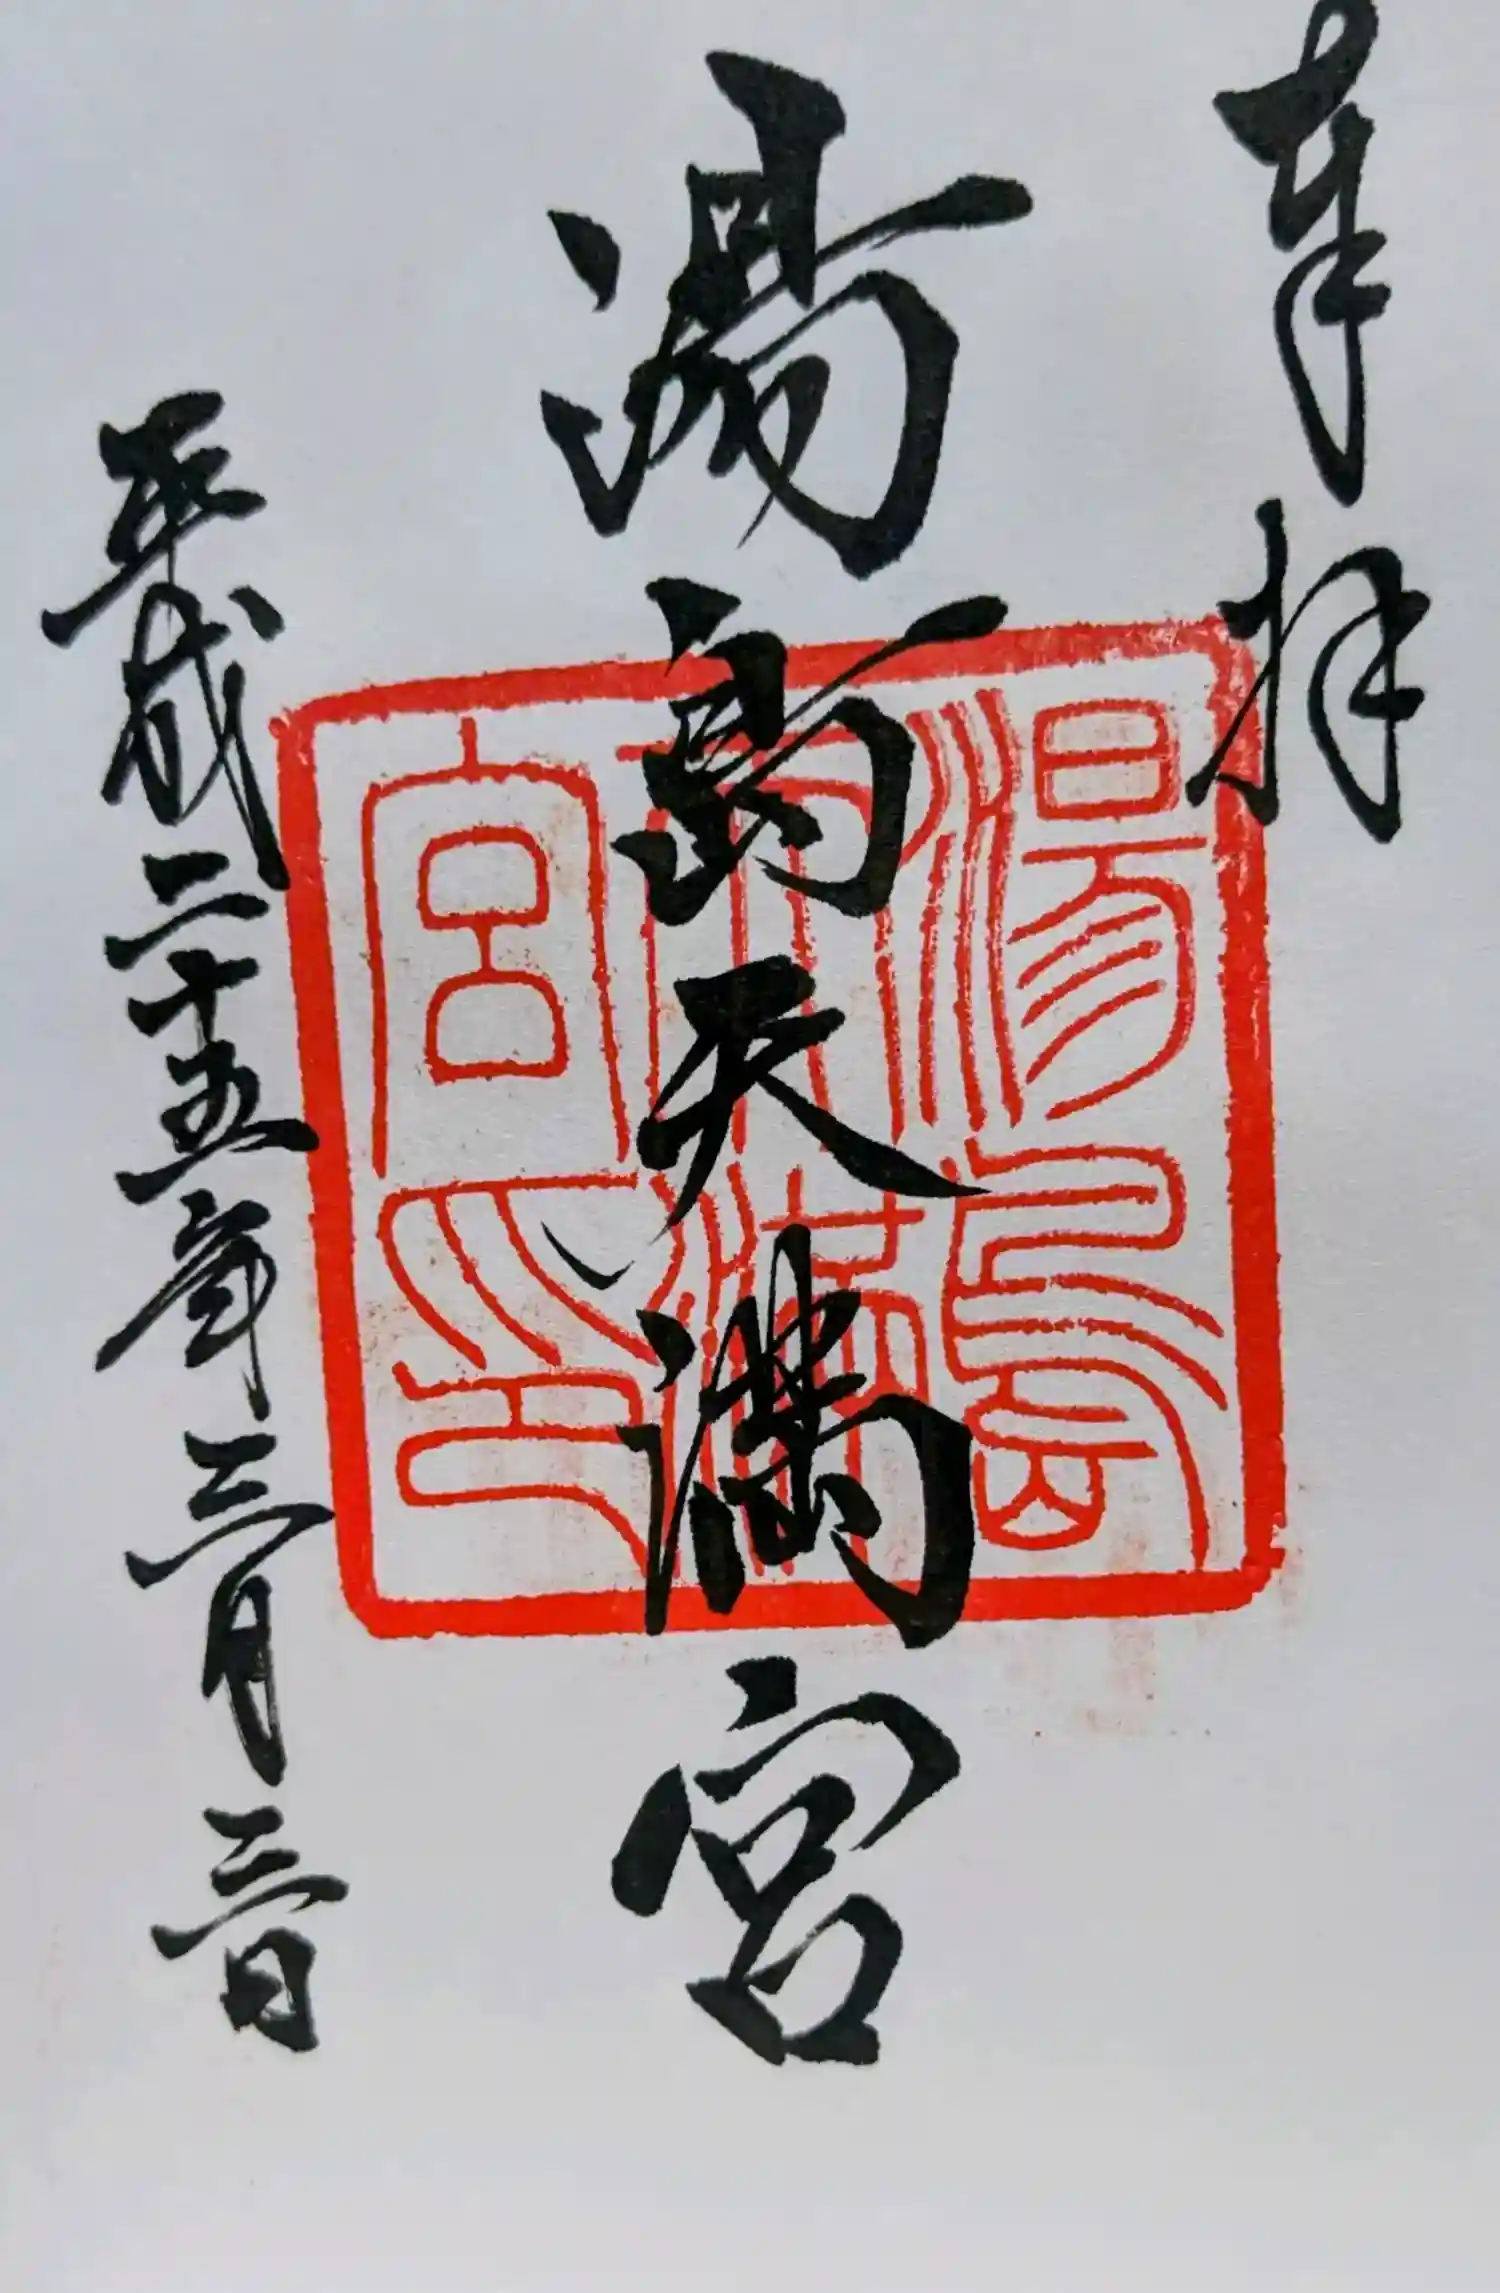 奉拝
湯島天満宮
湯島天満宮印
平成二十五年三月三日